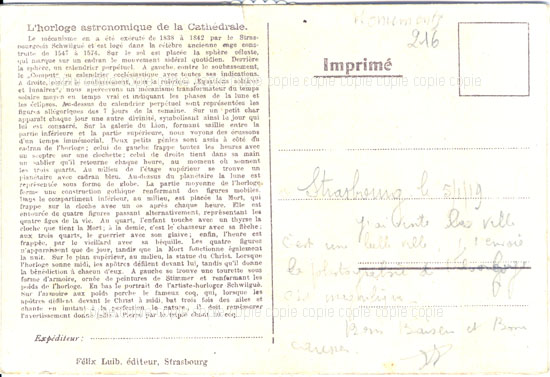 L'horloge astronomique de la Cathédrale.
Le mécanisme en a été exécuté de 1838 à 1842 par le Stras-
bourgeois Schwilgué et est logé dans la célèbre ancienne cage cons-
truite de 1547 à 1574. Sur le sol est placée la sphère céleste,
qui marque sur un cadran le mouvement sidéral quotidien. Derrière
la sphère, un calendrier perpétuel. A gauche contre le soubassement,
le „Comput" ou calendrier ecclésiastique avec toutes ses indications.
A droite, contre le soubassement, sous la rubrique „Equations solaires
et lunaires", nous apercevons un mécanisme transformateur du temps
solaire moyen en temps vrai et indiquant les phases de la lune et
les éclipses. Au-dessus du calendrier perpétuel sont représentées les
figures allégoriques des 7 jours de la semaine. Sur un petit char
apparaît chaque jour une autre divinité, symbolisant ainsi le jour qui
lui est consacré. Sur la galerie du Lion, formant saillie entre la
partie inférieure et la partie supérieure, nous voyons des écussons
d'un temps immémorial. Deux petits génies sont assis à côté du
cadran de l'horloge; celui de gauche frappe toutes les heures avec
un sceptre sur une clochette; celui de droite tient dans sa main
un sablier qu'il retourne chaque heure, au moment où sonnent
les trois quarts. Au milieu de l'étage supérieur se trouve un
planétaire avec cadran bleu. Au-dessus du planétaire la lune est
représentée sous forme de globe. La partie moyenne de l'horloge
forme une construction gothique renfermant des figures mobiles.
Dans le compartiment inférieur, au milieu, est placée la Mort, qui
frappe sur la cloche avec un os après chaque heure. Elle est
entourée de quatre figures passant alternativement, représentant les
quatre âges de la vie. Au quart, l'enfant touche avec un thyrse la
cloche que tient la Mort; à la demie, c'est le chasseur avec sa flèche;
aux trois quarts, le guerrier avec son glaive; enfin, l'heure est
frappée, par le vieillard avec sa béquille. Les quatre figures
n'apparaissent que de jour, tandis que la Mort fonctionne également
la nuit. Sur le plan supérieur, au milieu, la statue du Christ. Lorsque
l'horloge sonne midi, les apôtres défilent devant lui, tandis qu'il donne
la bénédiction à chacun d'eux. A gauche se trouve une tourette sous
forme d'armoire, ornée de peintures de Stimmer et renfermant les
poids de l'horloge. En bas le portrait de l'artiste-horloger Schwilgué.
Sur l'armoire aux poids perche le fameux coq, qui, lorsque les
apôtres défilent devant le Christ à midi, bat trois fois des ailes et
chante en imitant à la perfection la nature; il doit remémorer
l'avertissement donné jadis à Pierre par le triple chant du coq.
Expéditeur:
Félix Luib, éditeur, Strasbourg
Monuments
216
Imprimé
copie copie copie copie copie copie copie
Strasbourg le 5/1/19
J'ai visité la ville
C'est une belle ville
Bons Baisers et Bonne
caresses